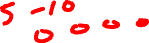 5 -10
0 0 0 0